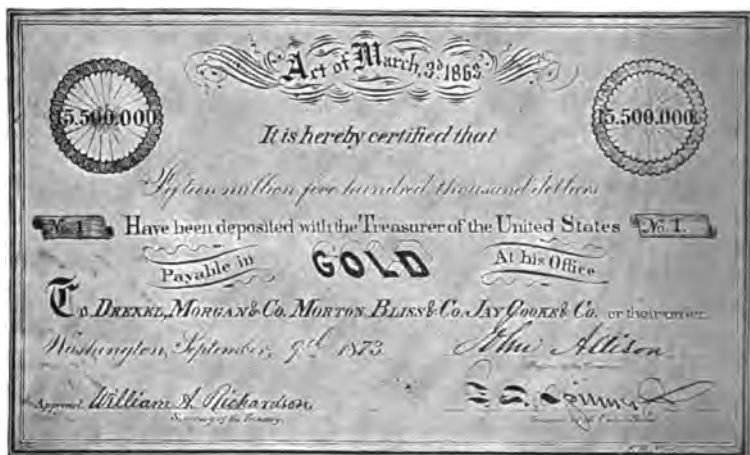 Act of March, 3d. 1863
15.500.000. 15.500.000.
It is hereby certified that
Fifteen million five hundred thousand dollars
No. 1. Have been deposited with the Treasurer of the United States No. 1.
Payable in GOLD At his Office
To Drexel, Morgan & Co. Morton, Bliss & Co. Jay Cooke & Co. or their order
Washington, September, 9th. 1873. John Allison
Register of the Treasury
Approved. William A. Richardson F. E. Spinner
Secretary of the Treasury. Treasurer of the United States